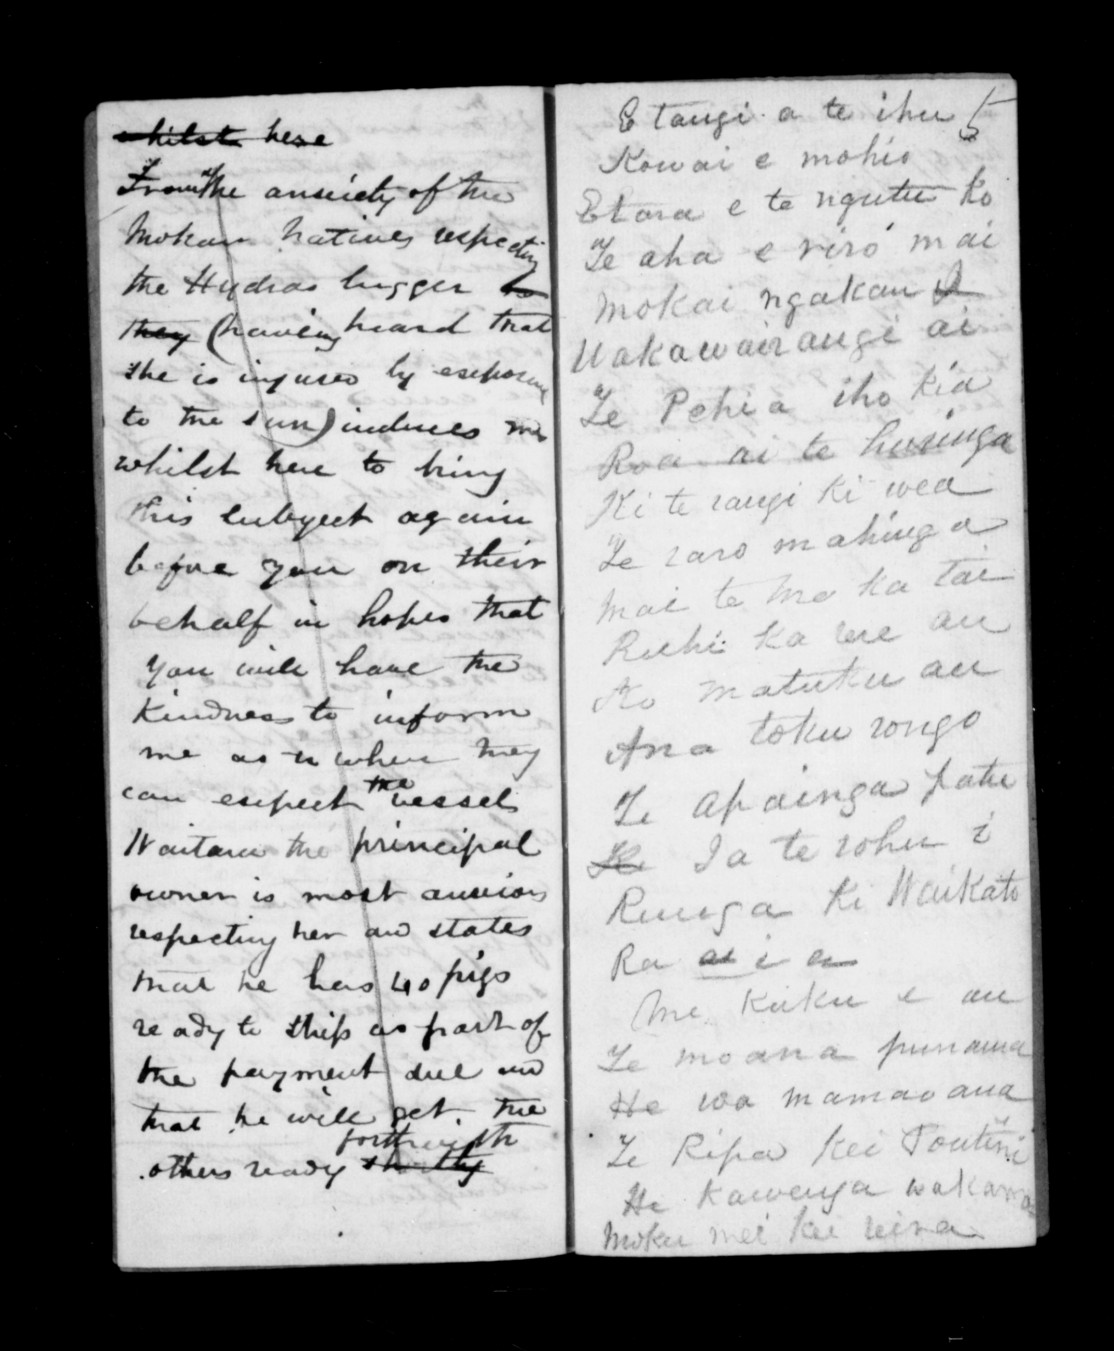 whilst here
From the anxiety of the
Mokau Natives respecting
the Hydras lugger to
they (having heard that
she is injured by exposure
to the sun) induces me
whilst here to bring
this subject again
before you on their
behalf in hopes that
you will have the
kindness to inform
me as to when they
can expect the vessel
Waitara the principal
owner is most anxious
respecting her and states
that he has 40 pigs
ready to ship as part of
the payment due and
that he will get the
forthwith
others ready shortly
E tangi a te ihu 5
Kowai e mohio
E tara e te ngutu ko
Te aha e riro mai
Mokai ngakau
Wakawairangi ai
Te Pehia iho kia
Roa ai te huringa
Ki te rangi ki wea
Te raro mahinga
Mai te mo ka tai
Ruhi ka rere au
Ko matuku au
Ana toku rongo
Te apainga patu
Ia te rohu i
Runga ki Waikato
Ra ai i a
Me kuku e au
Te moana punawa
He wa mamao ana
Te Ripa kei Poutini
He kawenga wakama
Moku mei kei reira